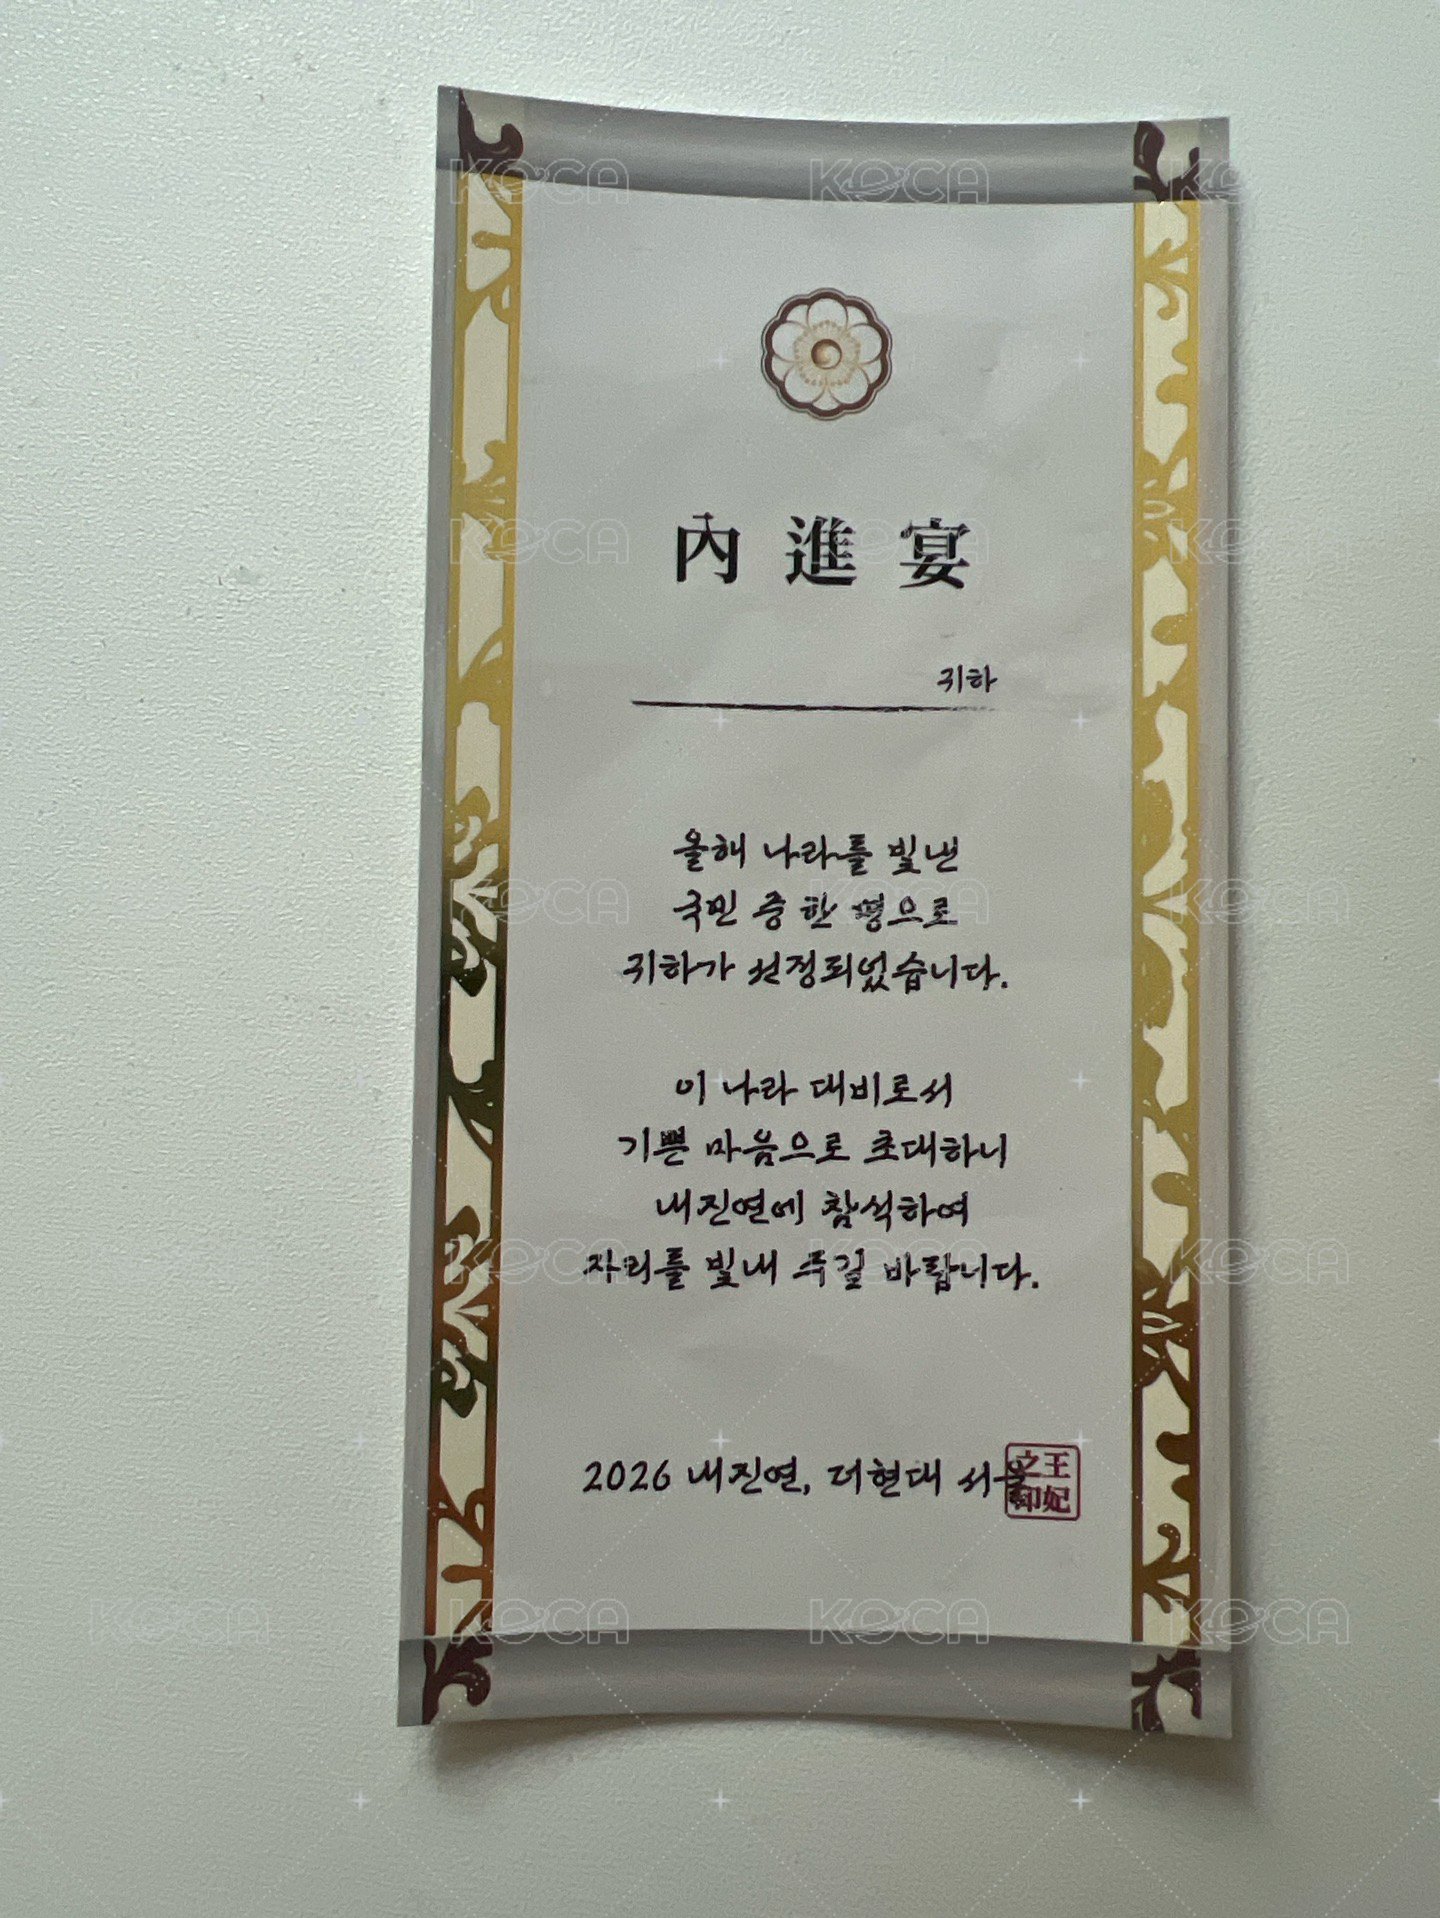 內進宴
귀하
올해 나라를 빛낸
국민 중 한 명으로
귀하가 선정되었습니다.
이 나라 대비로서
기쁜 마음으로 초대하니
내진연에 참석하여
자리를 빛내 주길 바랍니다.
2026 내진연, 더현대 서울
之王
印妃
KeCA